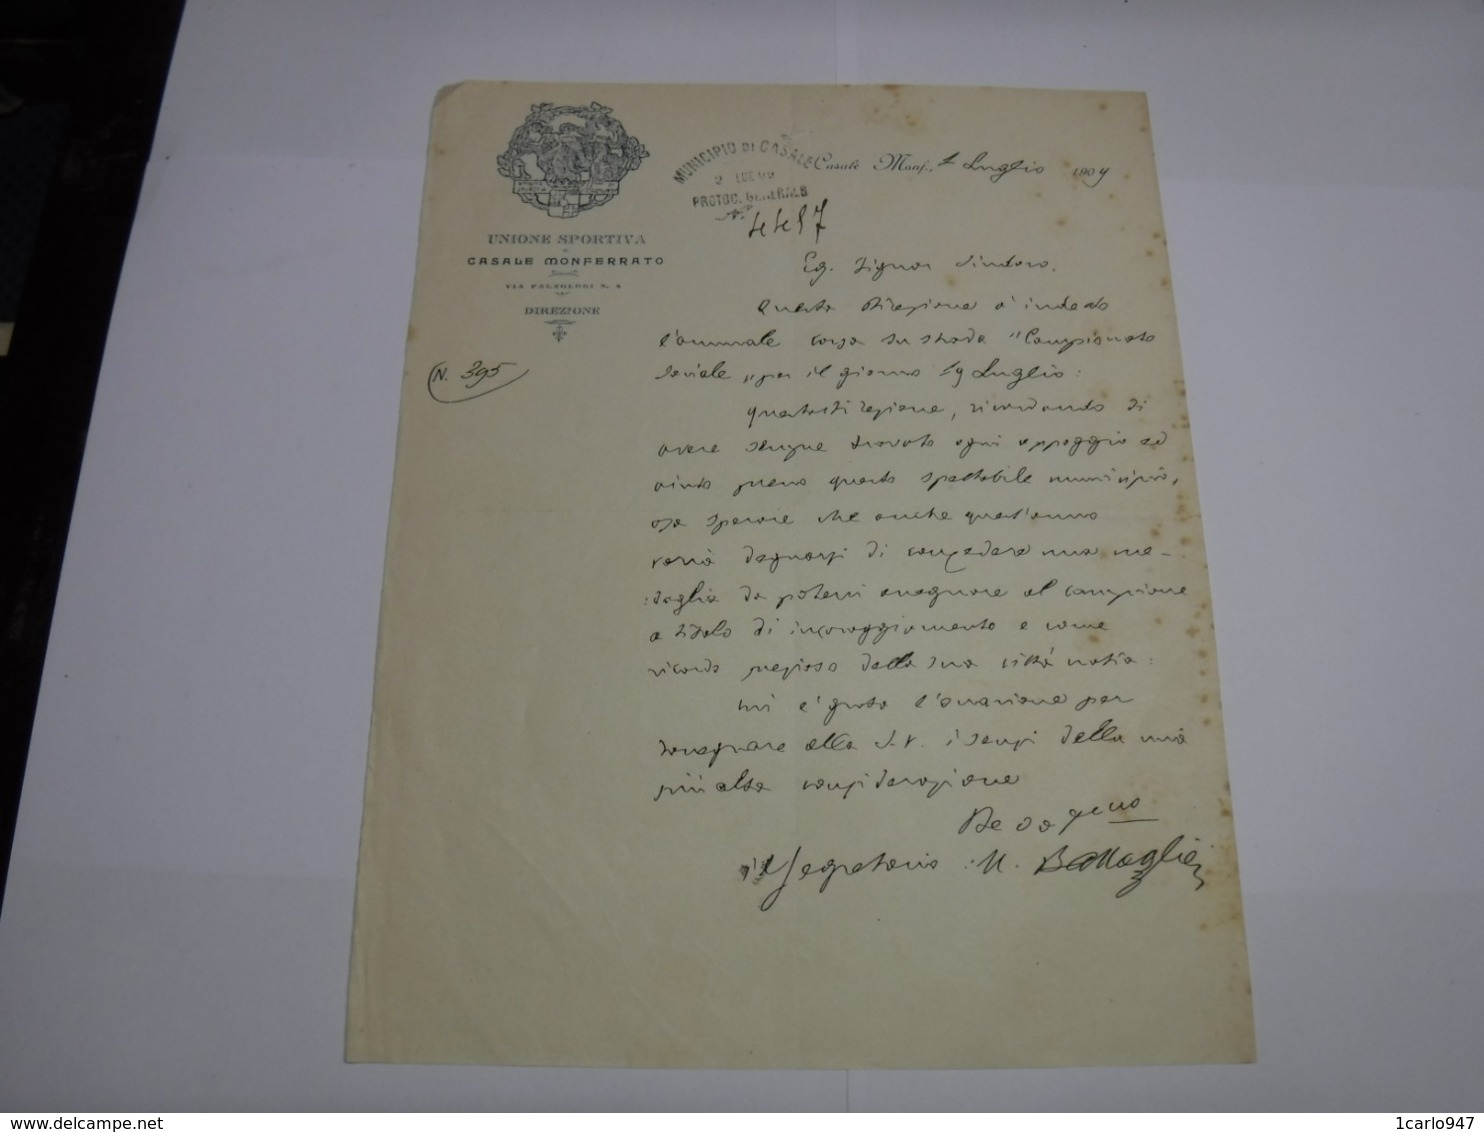 UNIONE SPORTIVA
CASALE MONFERRATO
VIA PALEOLOGI N. 4
DIREZIONE
N. 395
MUNICIPIO DI CASALE
2 LUG 09
PROTOC. GENERALE
N.
Casale Monf., 1 Luglio 1909
Eg. Signor Sindaco.
Questa Direzione à indetto
l'annuale corsa su strada "Campionato
Sociale" per il giorno Luglio:
questa direzione, ricordando di
avere sempre trovato ogni appoggio ed
aiuto presso questo spettabile municipio,
osa sperare che anche quest'anno
vorrà degnarsi di concedere una me-
:daglia da potersi assegnare al campione
a titolo di incoraggiamento e come
ricordo prezioso della sua città natia:
Mi è grata l'occasione per
rassegnare alla S.V. i sensi della mia
più alta considerazione
il Segretario: M. Battaglieri
www.delcampe.net
1carlo947